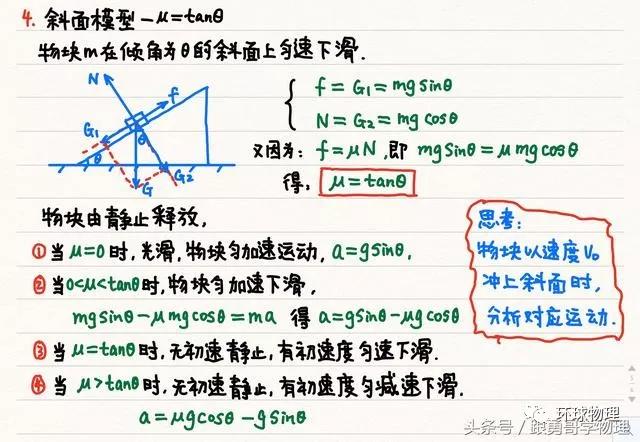 4. 斜面模型-μ=tanθ
物块m在倾角为θ的斜面上匀速下滑.
N
f
G1
θ
θ
G
G2
f=G1=mgsinθ
N=G2=mgcosθ
又因为: f=μN,即 mgsinθ=μmgcosθ
得, μ=tanθ
物块由静止释放,
①当μ=0时,光滑,物块匀加速运动, a=gsinθ,
②当0<μ<tanθ时,物块匀加速下滑,
mgsinθ-μmgcosθ=ma 得 a=gsinθ-μgcosθ
③当μ=tanθ时,无初速静止,有初速度匀速下滑.
④当μ>tanθ时,无初速静止,有初速度匀减速下滑.
a=μgcosθ-gsinθ
思考:
物块以速度V0
冲上斜面时,
分析对应运动.
环球物理
头条号/跟勇哥学物理